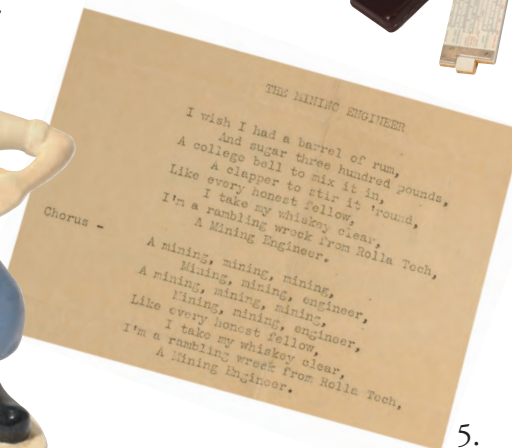 THE MINING ENGINEER
I wish I had a barrel of rum,
And sugar three hundred pounds,
A college bell to mix it in,
A clapper to stir it 'round,
Like every honest fellow,
I take my whiskey clear,
I'm a rambling wreck from Rolla Tech,
A Mining Engineer.
Chorus -
A mining, mining, mining,
Mining, mining, engineer,
A mining, mining, mining,
Mining, mining, engineer,
Like every honest fellow,
I take my whiskey clear,
I'm a rambling wreck from Rolla Tech,
A Mining Engineer.
5.